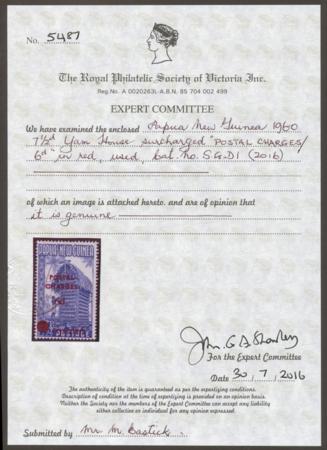 No. 5487
The Royal Philatelic Society of Victoria Inc.
Reg.No. A 0020263L-A.B.N. 85 704 002 499
EXPERT COMMITTEE
We have examined the enclosed Papua New Guinea 1960
7½d Yam House surcharged "POSTAL CHARGES/
6d" in red, used, Cat. No. S.G.D1 (2016)
of which an image is attached hereto. and are of opinion that
it is genuine
PAPUA·NEW GUINEA
POSTAL
CHARGES
6d
POSTAGE
For the Expert Committee
Date 30/7/2016
The authenticity of the item is guaranteed as per the expertising conditions.
Description of condition at the time of expertising is provided on an opinion basis.
Neither the Society nor the members of the Expert Committee can accept any liability
either collective or individual for any opinion expressed.
Submitted by Mr M Bastick.